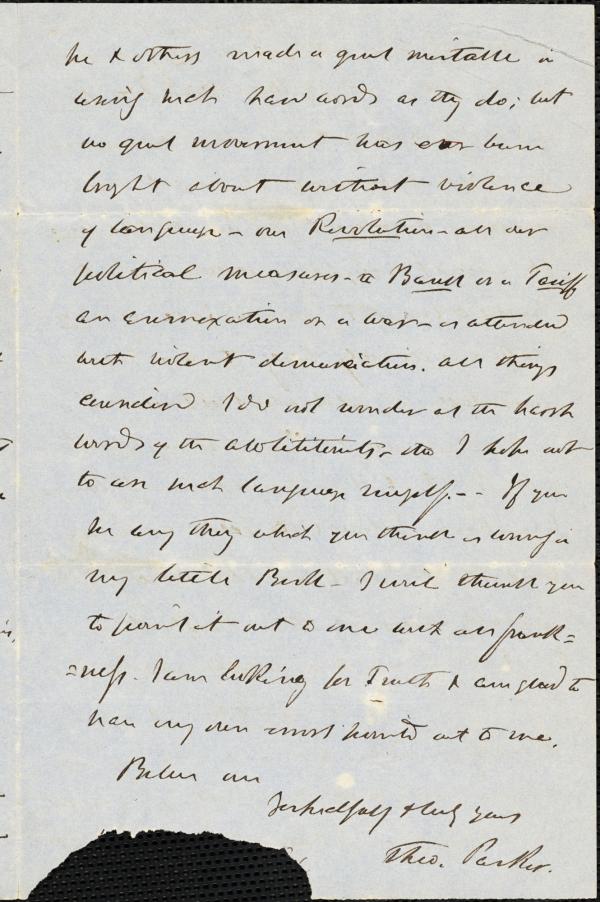 he & others made a great mistake in
using such hard words as they do; but
no great movement has ever been
brought about without violence
of language – our Revolution – all our
political measures – a Bank or a Tariff
an annexation or a war – is attended
with violent denunciations. All things
considered I do not wonder at the harsh
words of the abolitionists – tho I hope not
to use such language myself. – – If you
see any thing which you think is wrong in
my little Book – I will thank you
to point it out to me with all frank=
=ness. I am looking for Truth & am glad to
have my own errors pointed out to me.
Believe me
respectfully & truly yours
Theo. Parker.